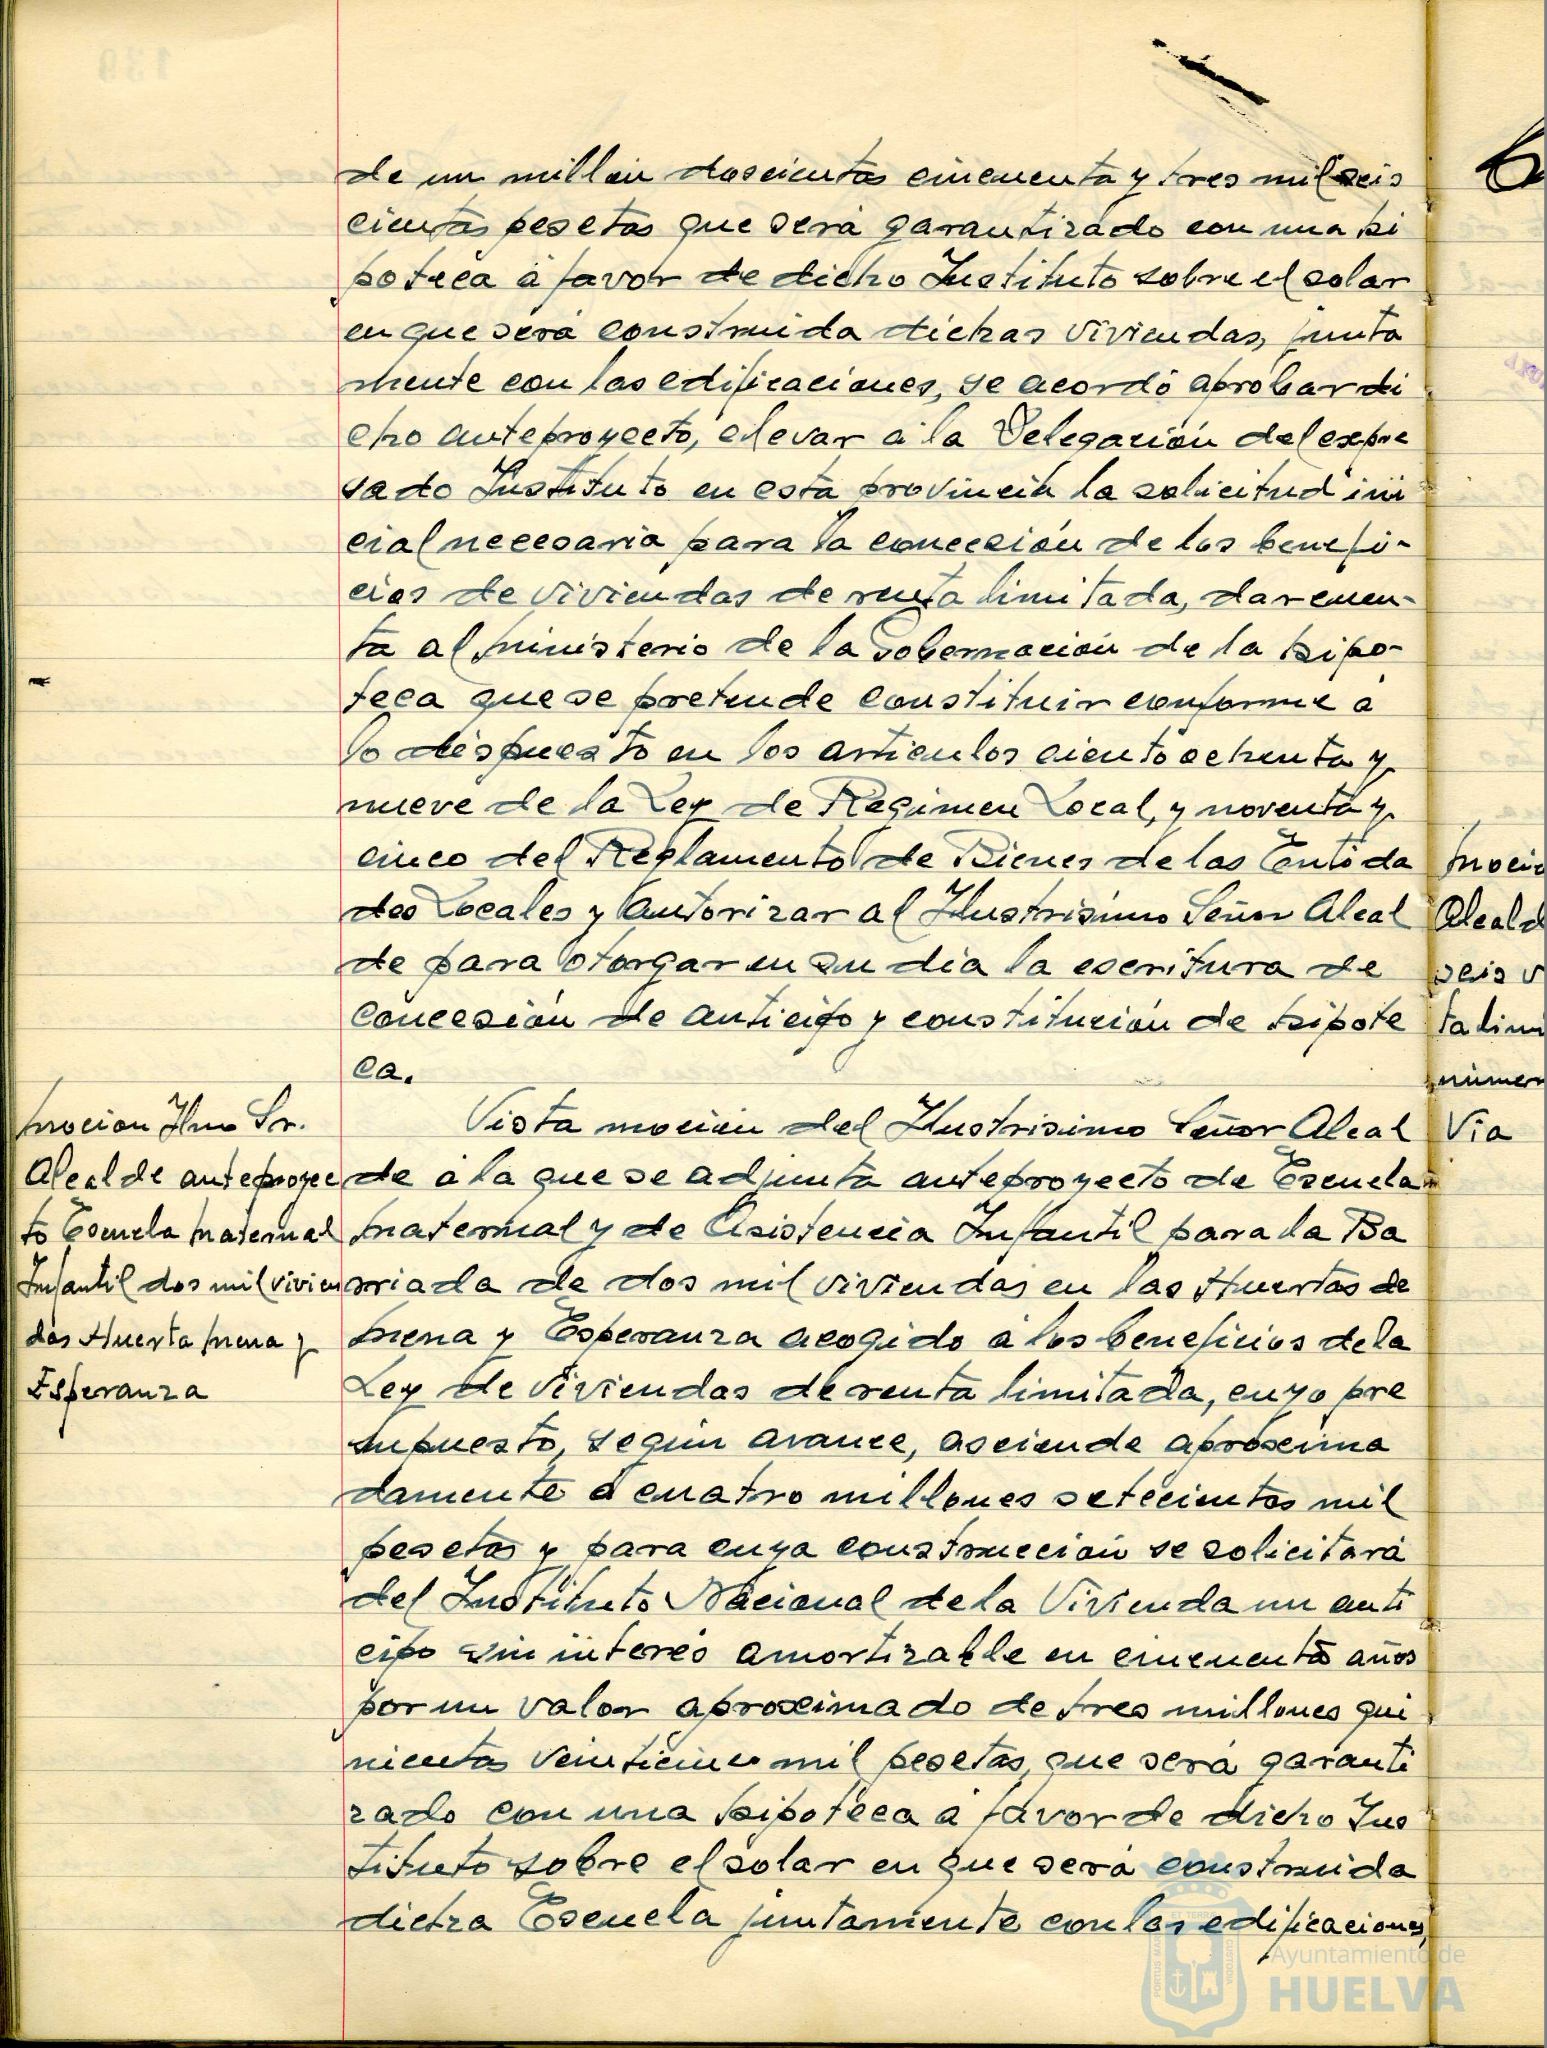 de un millón doscientas cincuenta y tres mil seis
cientas pesetas que será garantizado con una hi
poteca a favor de dicho Instituto sobre el solar
en que será construida dichas viviendas, junta
mente con las edificaciones, se acordó aprobar di
cho anteproyecto, elevar a la Delegación del expre
sado Instituto en esta provincia la solicitud ini
cial necesaria para la concesión de los benefi-
cios de viviendas de renta limitada, dar cuen-
ta al Ministerio de la Gobernación de la hipo-
teca que se pretende constituir conforme a
lo despuesto en los articulos ciento ochenta y
nueve de la Ley de Regimen Local, y noventa y
cinco del Reglamento de Bienes de las Entida
des Locales y autorizar al Ilustrisimo Señor Alcal
de para otorgar en su día la escritura de
concesión de anticipo y constitución de hipote
ca.
Moción Ilmo Sr.
Alcalde anteproyec
to Escuela Maternal
Infantil dos mil vivien
das Huerta Mena y
Esperanza
Vista moción del Ilustrisimo Señor Alcal
de a la que se adjunta anteproyecto de Escuela
Maternal y de Asistencia Infantil para la Ba
rriada de dos mil viviendas en las Huertas de
Mena y Esperanza acogido a los beneficios de la
Ley de Viviendas de renta limitada, cuyo pre
supuesto, según avance, asciende aproxima
damente a cuatro millones setecientas mil
pesetas y para cuya construcción se solicitará
del Instituto Nacional de la Vivienda un anti
cipo sin interés amortizable en cincuenta años
por un valor aproximado de tres millones qui
nientas veinticinco mil pesetas, que será garanti
zado con una hipoteca a favor de dicho Ins
tituto sobre el solar en que será construida
dicha Escuela juntamente con las edificaciones,
Moció
Alcald
seis v
ta limi
númer
Via
Ayuntamiento de
HUELVA
139